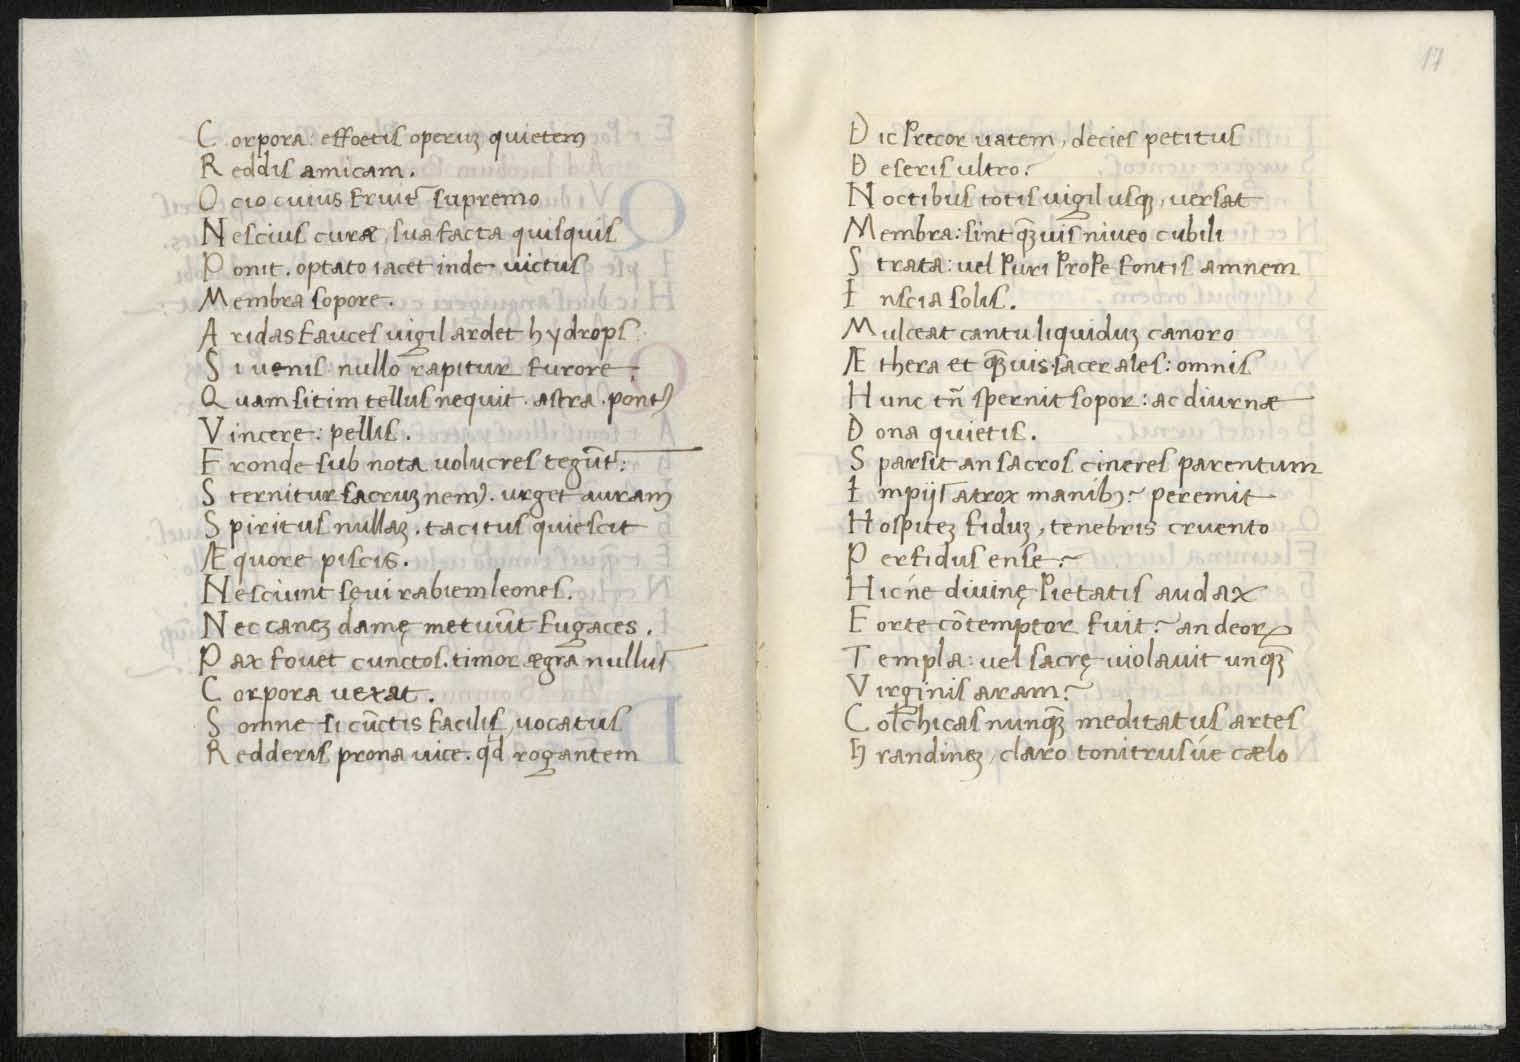 Corpora: effoetis operuȝ quietem
Reddis amicam.
Ocio cuius fruit̃ supremo
Nescius curæ, sua facta quisquis
Ponit. optato iacet inde uictus
Membra sopore.
Aridas fauces uigil ardet hydrops
Si uenis: nullo rapitur furore.
Quam sitim tellus nequit. astra. pont9
Vincere: pellis.
Fronde sub nota uolucres tegũt:
Sternitur sacruȝ nem9. urget auram
Spiritus nullaȝ. tacitus quiescit
Æquore piscis.
Nesciunt sęui rabiem leones.
Nec caneȝ damę metuũt fugaces.
Pax fouet cunctos. timor ægra nullus
Corpora uexat.
Somne si cũctis facilis, uocatus
Redderis prona uice. qd rogantem
17
Dic precor uatem, decies petitus
Deseris ultro?
Noctibus totis uigil usqȝ, uersat
Membra: sint qȝuis niueo cubili
Strata: uel puri prope fontis amnem
Inscia solis.
Mulceat cantu liquiduȝ canoro
Æthera et qȝuis sacer ales: omnis
Hunc tñ spernit sopor: ac diurnæ
Dona quietis.
Sparsit an sacros cineres parentum
Impijs atrox manibȝ? peremit
Hospiteȝ fiduȝ, tenebris cruento
Perfidus ense?
Hic ne diuinę pietatis audax
Forte cõtemptor fuit? an deoꝝ
Templa: uel sacrę uiolauit unqȝ
Virginis aram?
Colchicas nunqȝ meditatus artes
Grandineȝ, claro tonitrus úe cælo